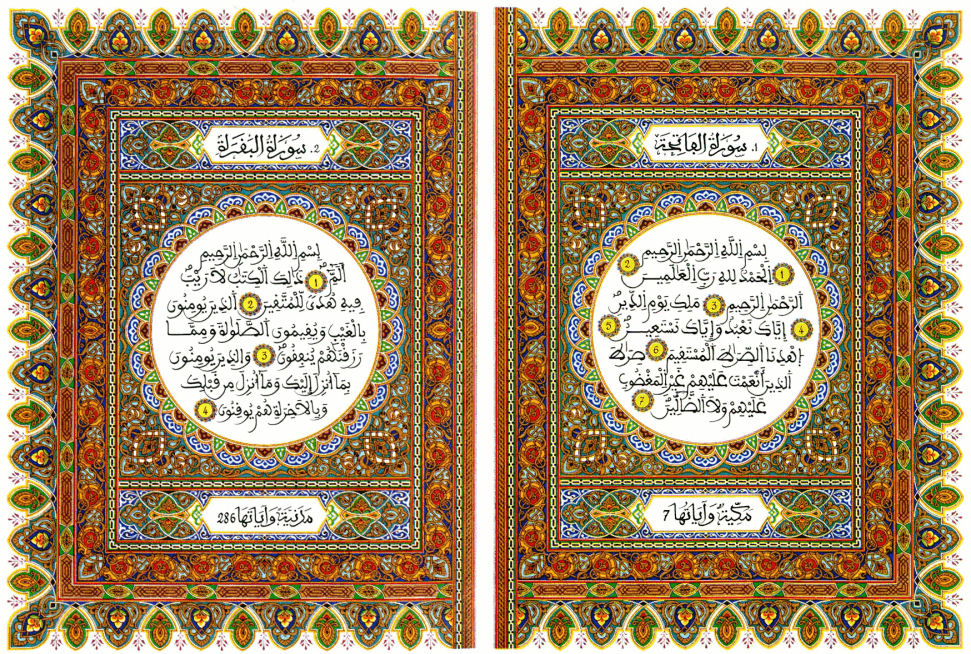 1. سُورَةُ الْفَاتِحَةِ
بِسْمِ اِللَّهِ اِلرَّحْمَٰنِ اِلرَّحِيمِ
1 اَلْحَمْدُ لِلهِ رَبِّ اِلْعَٰلَمِينَ 2
اَلرَّحْمَٰنِ اِلرَّحِيمِ 3 مَلِكِ يَوْمِ اِلدِّينِ
4 إِيَّاكَ نَعْبُدُ وَإِيَّاكَ نَسْتَعِينُ 5
اِهْدِنَا اَلصِّرَٰطَ اَلْمُسْتَقِيمَ 6 صِرَٰطَ
اَلذِينَ أَنْعَمْتَ عَلَيْهِمْ غَيْرِ اِلْمَغْضُوبِ
عَلَيْهِمْ وَلَا اَلضَّآلِّينَ 7
مَكِّيَّةٌ وَآيَاتُهَا 7
2. سُورَةُ الْبَقَرَةِ
بِسْمِ اِللَّهِ اِلرَّحْمَٰنِ اِلرَّحِيمِ
أَلَٓمِّٓ 1 ذَٰلِكَ اَلْكِتَٰبُ لَا رَيْبَ
فِيهِ هُدًى لِّلْمُتَّقِينَ 2 اَلذِينَ يُومِنُونَ
بِالْغَيْبِ وَيُقِيمُونَ اَلصَّلَوٰةَ وَمِمَّا
رَزَقْنَٰهُمْ يُنفِقُونَ 3 وَالذِينَ يُومِنُونَ
بِمَا أُنزِلَ إِلَيْكَ وَمَا أُنزِلَ مِن قَبْلِكَ
وَبِالَاخِرَةِ هُمْ يُوقِنُونَ 4
مَدَنِيَّةٌ وَآيَاتُهَا 286